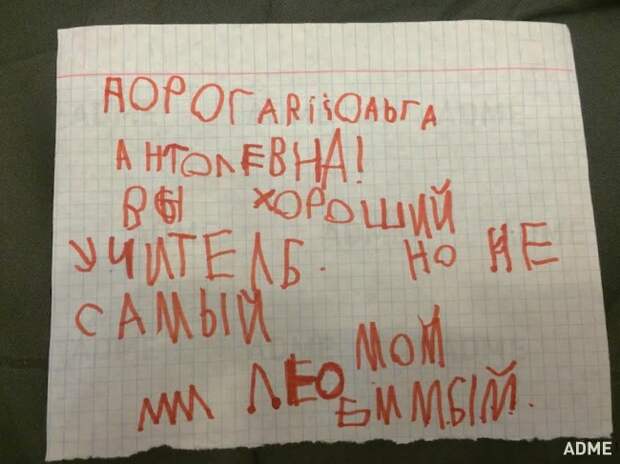 ДОРОГАЯ ОЛЬГА
АНТОЛЕВНА!
ВЫ ХОРОШИЙ
УЧИТЕЛЬ. НО НЕ
САМЫЙ
МОЙ
ЛЕО БИМЫЙ.
ADME